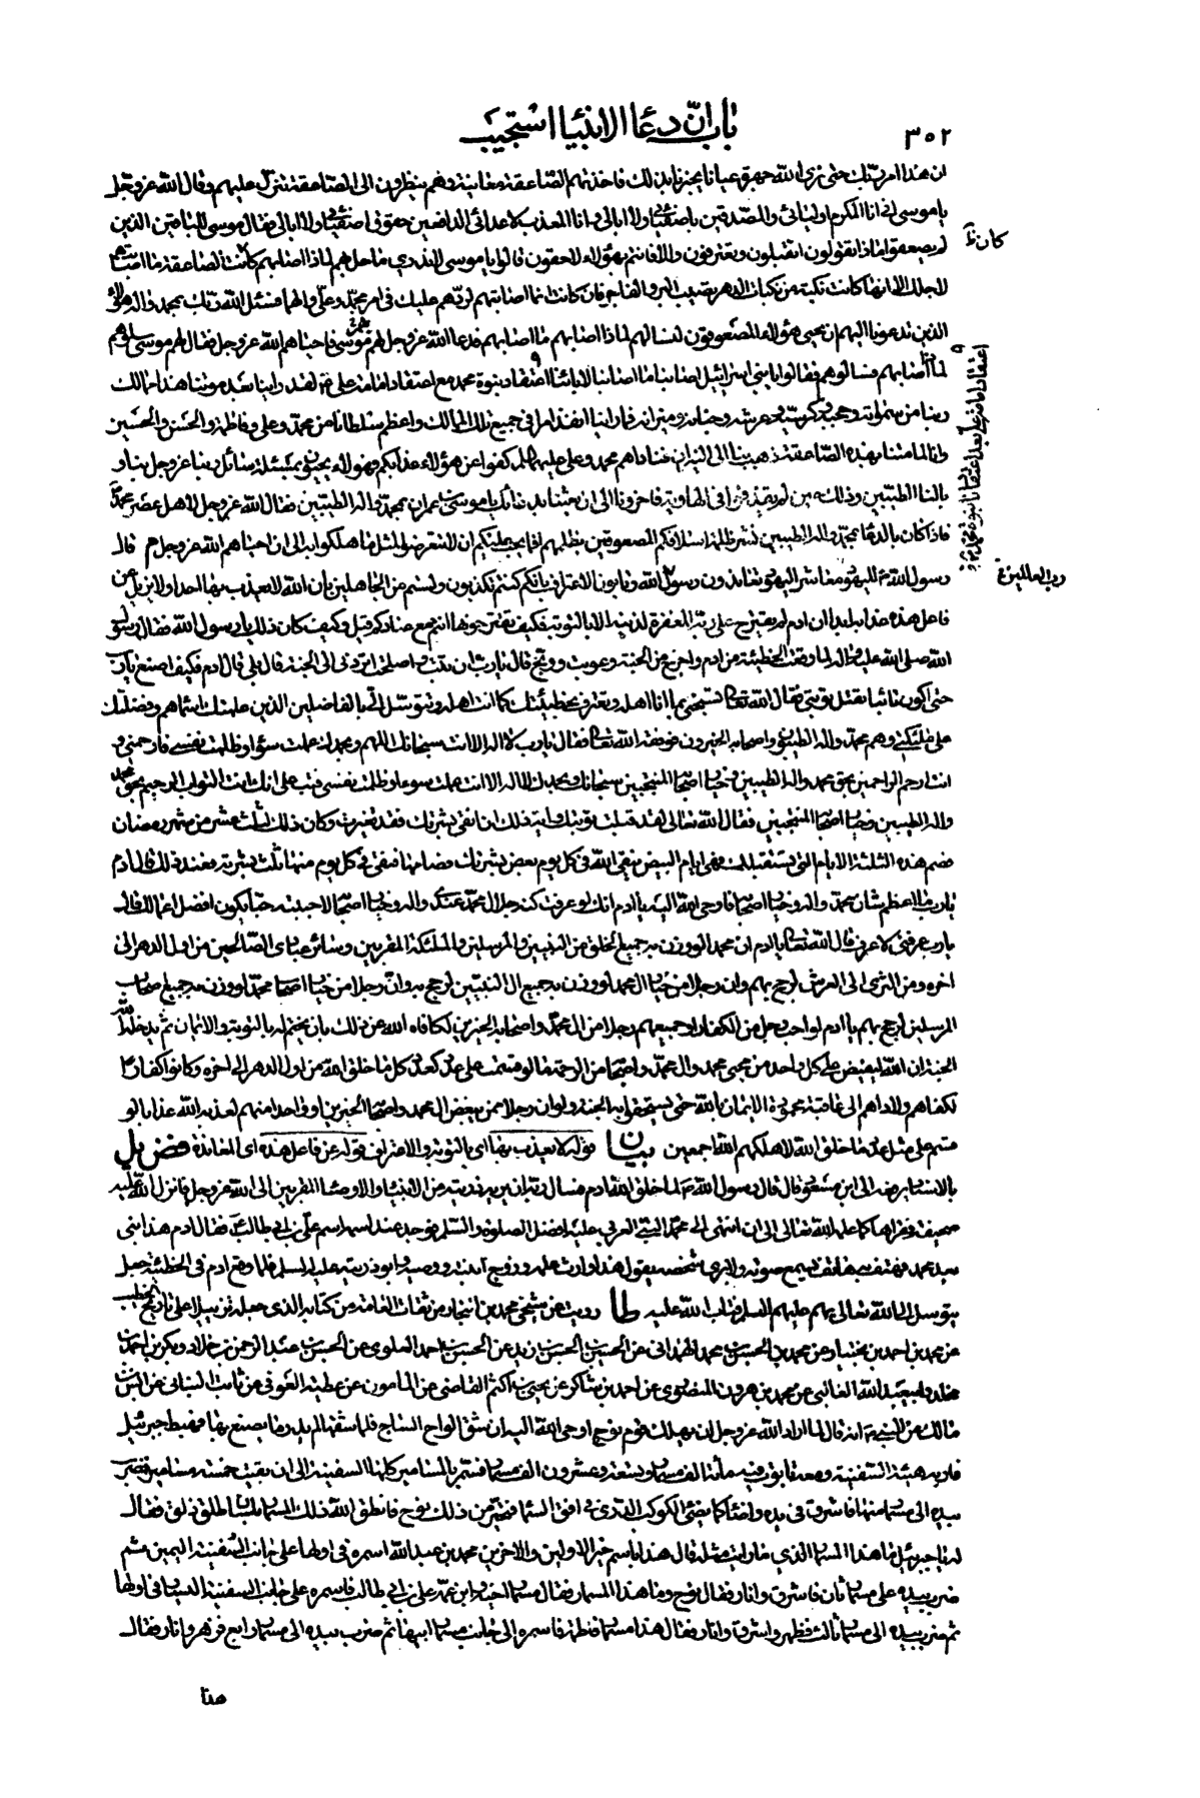 باب ان دعا الانبيا استجيب
٣٥٢
ان هذا امر ربك حتى نرى الله جهرة عيانا يخبرنا بذلك فاخذتهم الصاعقة معاينة وهم ينظرون الى الصاعقة تنزل عليهم وقال الله عز وجل
يا موسى اني انا المكرم اوليائي والمصدقين باصفيائي ولا ابالي وانا المعذب لاعدائي الدافعين حقوق اصفيائي ولا ابالي فقال موسى للباقين الذين
لم يصعقوا ماذا تقولون اتقبلون وتعترفون والا فانتم بهؤلاء لاحقون قالوا يا موسى لا ندري ما حل بهم لماذا اصابهم كانت الصاعقة ما اصابتهم
كان خ
لاجلك الا انها كانت نكبة من نكبات الدهر تصيب البر والفاجر فان كانت انما اصابتهم لردهم عليك في امر محمد وعلي والهما فسئل الله ربك بمحمد واله هؤلاء
الذين تدعونا اليهم ان يحيى هؤلاء المصعوقين لنسالهم لماذا اصابهم ما اصابهم فدعا الله عز وجل لهم موسى فاحياهم الله عز وجل فقال لهم موسى سلوهم
لماذا اصابهم فسالوهم فقالوا يا بني اسرائيل اصابنا ما اصابنا لابائنا اعتقاد نبوة محمد مع اعتقاد امامة علي لقد راينا بعد موتنا هذا ممالك
اعتقاد امامة علي بعد اعتقادنا نبوة محمد
ربنا من سمواته وحجبه وكرسيه وعرشه وجنانه ونيرانه فما راينا انفذ امرا في جميع تلك الممالك واعظم سلطانا من محمد وعلي وفاطمة والحسن والحسين
وانا لما متنا بهذه الصاعقة ذهب بنا الى النيران فناداهم محمد وعلي عليهما كفوا عن هؤلاء عذابكم فهؤلاء يحيون بمسئلة سائل ربنا عز وجل بنا و
بالنا الطيبين وذلك حين لم يقذفونا في الهاوية فاخرونا الى ان بعثنا بدعائك يا موسى بن عمران بمحمد واله الطيبين فقال الله عز وجل لاهل عصر محمد
فاذا كان بالدعا بمحمد واله الطيبين نشر ظلمة اسلافكم المصعوقين بظلمهم افما يجب عليكم ان لا تتعرضوا لمثل ما هلكوا به الى ان احياهم الله عز وجل م قال
رسول الله لليهود معاشر اليهود تعاندون رسول الله وتابون الاعتراف بانكم كنتم تكذبون ولستم من الجاهلين بان الله لا يعذب بها احدا ولا يزيل عن
رب العالمين خ
فاعل هذه عذابه ابدا ان ادم لم يقترح على ربه المغفرة لذنبه الا بالتوبة فكيف تقترحونها انتم مع عنادكم قيل وكيف كان ذلك يا رسول الله فقال رسول
الله صلى الله عليه واله لما وقعت الخطيئة من ادم واخرج من الجنة وعوتب ووبخ قال يا رب ان تبت واصلحت اتردني الى الجنة قال بلى قال ادم فكيف اصنع يا رب
حتى اكون تائبا تقبل توبتي فقال الله تعالى تسبحني بما انا اهله وتعترف بخطيئتك كما انت اهله وتتوسل الي بالفاضلين الذين علمتك اسماءهم وفضلتك
على ملائكتي وهم محمد واله الطيبون واصحابه الخيرون فوفقه الله تعالى فقال يا رب لا اله الا انت سبحانك اللهم وبحمدك عملت سوءا وظلمت نفسي فارحمني و
انت ارحم الراحمين بحق محمد واله الطيبين وخيار اصحابه المنتجبين سبحانك وبحمدك لا اله الا انت عملت سوءا وظلمت نفسي فتب علي انك انت التواب الرحيم بحق محمد
واله الطيبين وخيار اصحابه المنتجبين فقال الله تعالى لقد قبلت توبتك واية ذلك ان انقي بشرتك فقد تغيرت وكان ذلك لثلث عشر من شهر رمضان
فصم هذه الثلثة الايام التي تستقبلك فهي ايام البيض ينقي الله في كل يوم بعض بشرتك فصامها فنقي في كل يوم منها ثلث بشرته فعند ذلك قال ادم
يا رب ما اعظم شان محمد واله وخيار اصحابه فاوحى الله اليه يا ادم انك لو عرفت كنه جلال محمد عندي واله وخيار اصحابه لاحببته حبا يكون افضل اعمالك قال
يا رب عرفني لاعرف قال الله تعالى يا ادم ان محمدا لو وزن به جميع الخلق من النبيين والمرسلين والملئكة المقربين وسائر عبادي الصالحين من اول الدهر الى
اخره ومن الثرى الى العرش لرجح بهم وان رجلا من خيار ال محمد لو وزن به جميع ال النبيين لرجح بهم وان رجلا من خيار اصحاب محمد لو وزن به جميع اصحاب
المرسلين لرجح بهم يا ادم لو احب رجل من الكفار او جميعهم رجلا من ال محمد واصحابه الخيرين لكافاه الله عن ذلك بان يختم له بالتوبة والايمان ثم يدخله الله
الجنة ان الله ليفيض على كل واحد من محبي محمد وال محمد واصحابه من الرحمة ما لو قسمت على عدد كعدد كل ما خلق الله من اول الدهر الى اخره وكانوا كفارا
لكفاهم ولاداهم الى عاقبة محمودة الايمان بالله حتى يستحقوا به الجنة ولو ان رجلا ممن يبغض ال محمد واصحابه الخيرين او واحدا منهم لعذبه الله عذابا لو
قسم على مثل عدد ما خلق الله لاهلكهم الله اجمعين بيان قوله لا يعذب بها اي بالتوبة والاعتراف قوله عن فاعل هذه اي المعاندة فض يل
بالاسناد يرفعه الى ابن مسعود قال قال رسول الله لما خلق الله ادم فسال ربه ان يريه ذريته من الانبيا والاوصيا المقربين الى الله عز وجل فانزل الله عليه
صحيفة فقراها كما علمه الله تعالى الى ان انتهى الى محمد النبي العربي عليه افضل الصلوة والسلم فوجد عند اسمه اسم علي بن ابي طالب فقال ادم هذا نبي
بعد محمد فهتف به هاتف يسمع صوته ولا يرى شخصه يقول هذا وارث علمه وزوج ابنته ووصيه وابو ذريته عليهم السلم فلما وقع ادم في الخطيئة جعل
يتوسل الى الله تعالى بهم عليهم السلم فتاب الله عليه طا رويت عن شيخي محمد بن النجار من ثقات العامة من كتابه الذي جعله تذييلا على تاريخ الخطيب
عن محمد بن احمد بن بختيار عن محمد بن الحسين بن محمد الهمداني عن الحسين بن الحسين بن زيد عن الحسين بن احمد العلوي عن الحسين بن عبد الرحمن بن خلاد وبكر بن احمد بن
مخلد وابي عبد الله الغالبي عن محمد بن هرون المنصوري عن احمد بن شاكر عن يحيى بن اكثم القاضي عن المامون عن عطية العوفي عن ثابت البناني عن انس بن
مالك عن النبي انه قال لما اراد الله عز وجل ان يهلك قوم نوح اوحى الله اليه ان شق الواح الساج فلما شقها لم يدر ما يصنع بها فهبط جبرئيل
فاراه هيئة السفينة ومعه تابوت فيه مائة الف مسمار وتسعة وعشرون الف مسمار فسمر بالمسامير كلها السفينة الى ان بقيت خمسة مسامير فضرب
بيده الى مسمار منها فاشرق في يده واضاء كما يضئ الكوكب الدري في افق السماء فتحير من ذلك نوح فانطق الله ذلك المسمار بلسان طلق ذلق فقال
له يا جبرئيل ما هذا المسمار الذي ما رايت مثله قال هذا باسم خير الاولين والاخرين محمد بن عبد الله اسمره في اولها على جانب السفينة اليمين ثم
ضرب بيده على مسمار ثان فاشرق وانار فقال نوح وما هذا المسمار فقال مسمار اخيه وابن عمه علي بن ابي طالب فاسمره على جانب السفينة اليسار في اولها
ثم ضرب بيده الى مسمار ثالث فظهر واشرق وانار فقال هذا مسمار فاطمة فاسمره الى جانب مسمار ابيها ثم ضرب بيده الى مسمار رابع فزهر وانار فقال
هذا